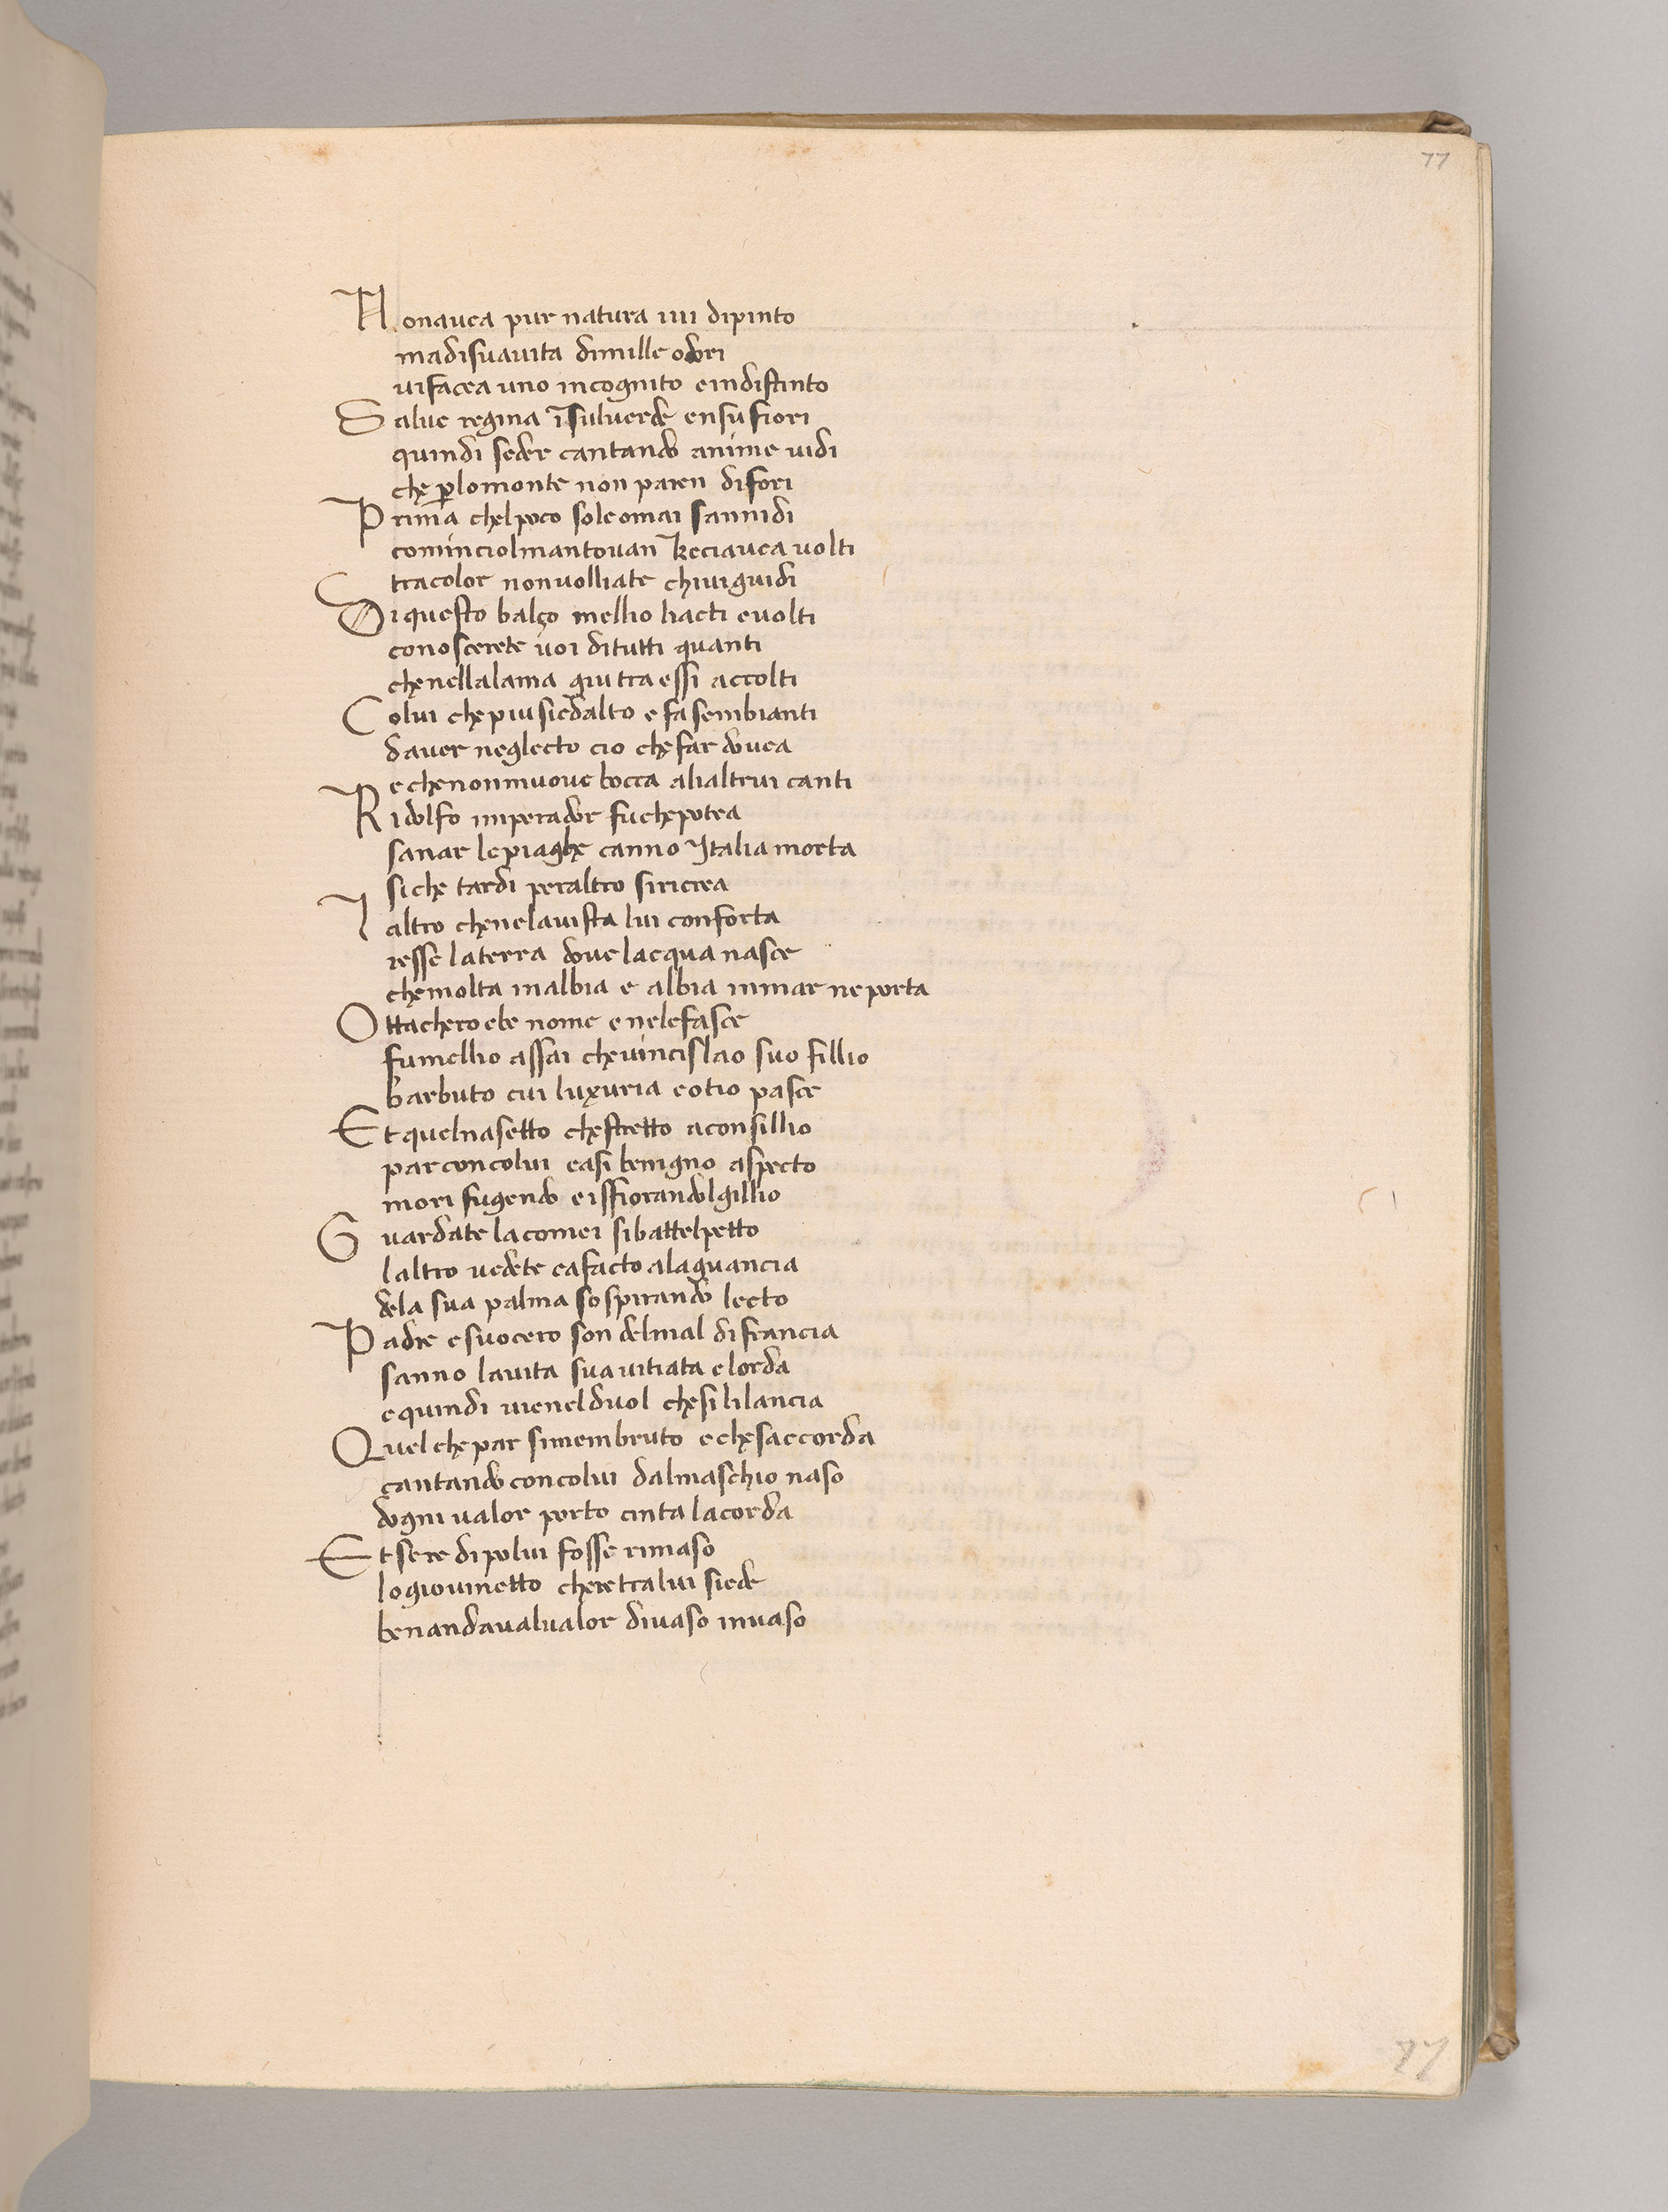 77
Nonauea pur natura iui dipinto
madisuauita dimille odori
uifacea uno incognito eindistinto
Salue regina ī sulverde ensu fiori
quindi seder cantando anime uidi
che p̱lomonte non paren difori
Prima chelpoco sole omai sannidi
cominciolmantouan keciauea uolti
tracolor nonuolliate chiuiguidi
Di questo balço mellio liacti euolti
conoscerete uoi ditutti quanti
chenellalama qui tra essi accolti
Colui che piu siedalto e fa sembianti
dauer neglecto cio che far douea
e chenonmuoue bocca alialtrui canti
Ridolfo imperador fu chepotea
sanar le piaghe canno Italia morta
siche tardi peraltro siricrea
laltro chenelauista lui conforta
resse laterra doue lacqua nasce
chemolta inalbia e albia inmar ne porta
Ottachero ebe nome e nelefasce
fumellio assai cheuincislao suo fillio
barbuto cui luxuria eotio pasce
Et quelnasetto chestretto aconsillio
par concolui casi benigno aspecto
mori fugendo e isfiorandolgillio
Guardate lacomei sibattelpetto
laltro uedete cafacto alaguancia
dela sua palma sospirando lecto
Padre e suocero son delmal difrancia
sanno lauita sua uitiata elorda
equindi uieneldvol chesi lilancia
Quel che par simembruto e chesaccorda
cantando concolui dalmaschio naso
dogni ualor porto cinta lacorda
Et sere dipolui fosse rimaso
logiouinetto cheretralui siede
benandaualualor diuaso inuaso
77